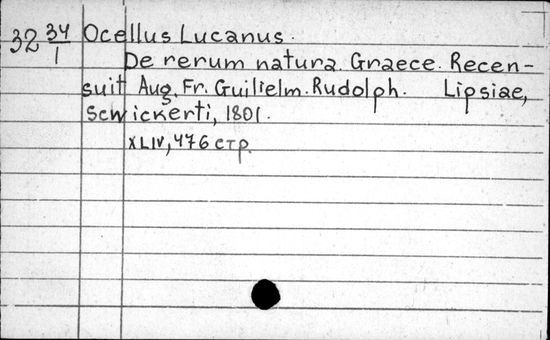 32 34/1 Ocellus Lucanus.
De rerum natura. Graece. Recen-
suit Aug. Fr. Guilielm. Rudolph. Lipsiae,
Schwickerti, 1801.
XLIV, 476 стр.